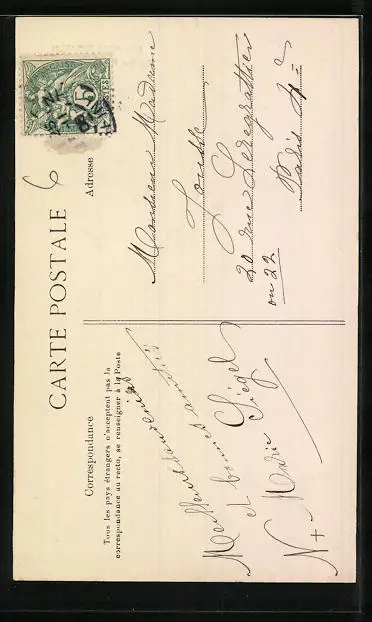 CARTE POSTALE
Correspondance
Tous les pays étrangers n'acceptent pas la
correspondance au recto, se renseigner à la Poste
Adresse
Meilleurs souvenirs
et bonnes amitiés
N + Marie Siégel
Monsieur Madame
20 rue Leregrattier
ou 22
Paris 4e
5
POSTES